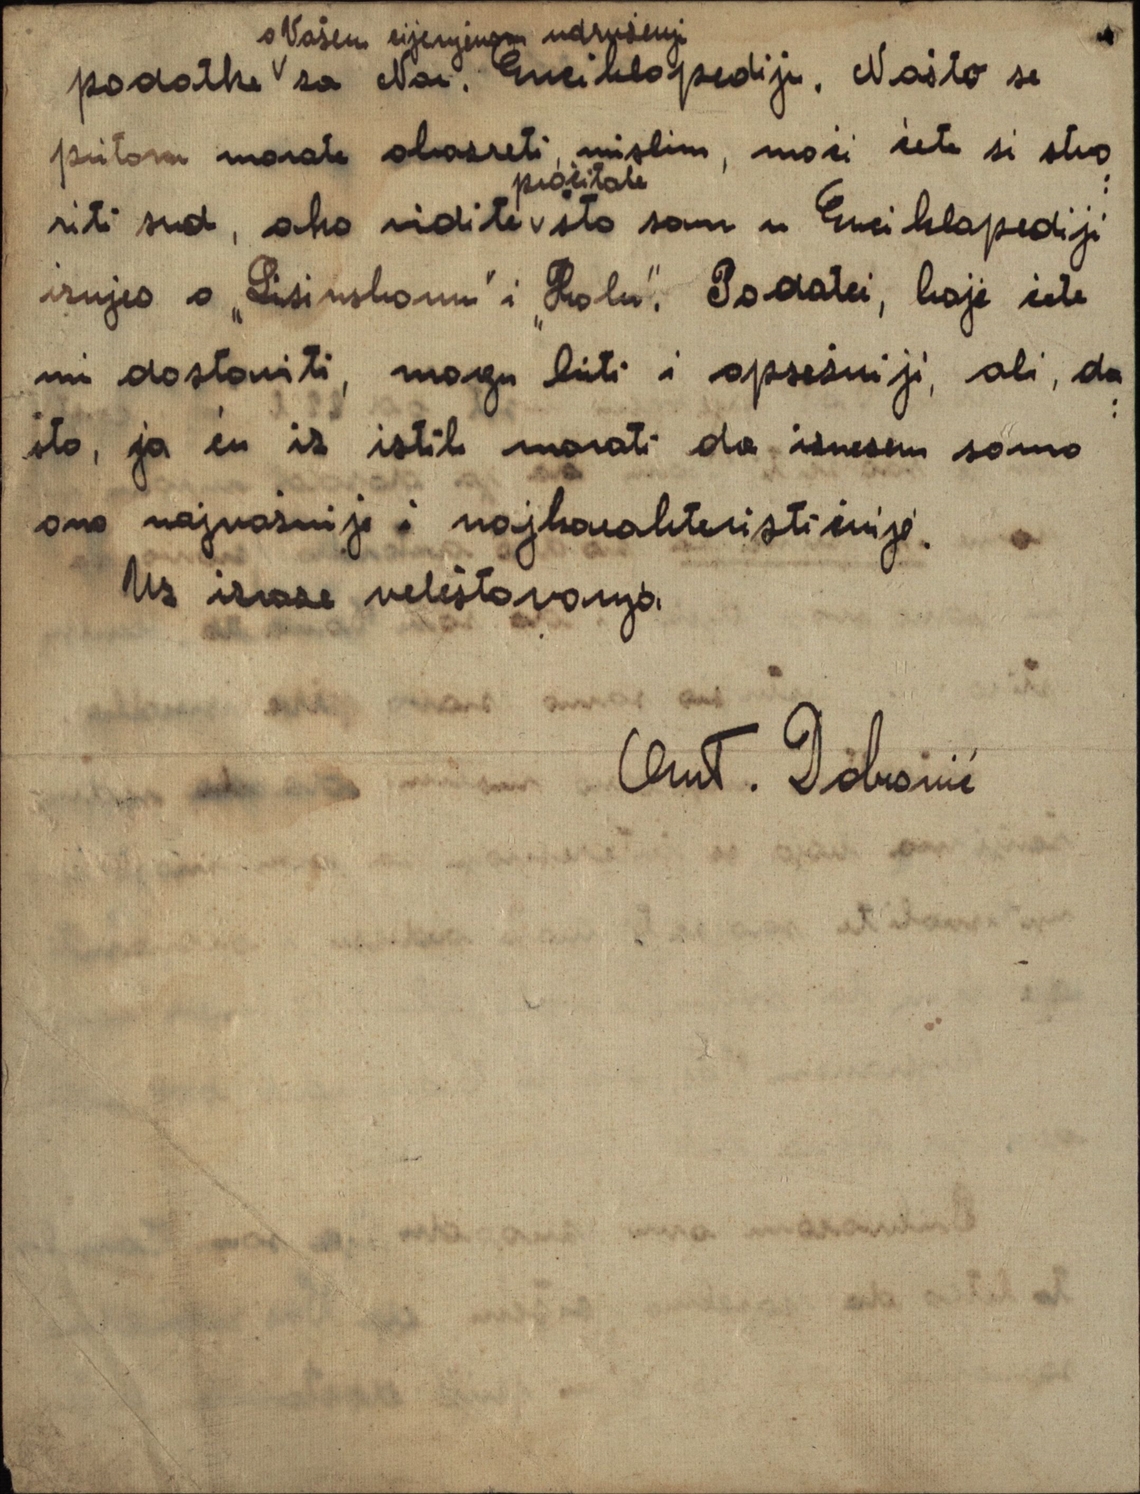 o Vašem cijenjenom udruženji
podatke za Nar. Enciklopediju. Našto se
pritom morate obazreti, mislim, moći ćete si stvo:
pročitate
riti sud, ako vidite što sam u Enciklopediji
iznjeo o „Lisinskomu" i „Kolu". Podatci, koje ćete
mi dostaviti, mogu biti i opsežniji, ali, da:
što, ja ću iz istih morati da iznesem samo
ono najvažnije i najkarakterističnije.
Uz izraze veleštovanja
Ant. Dobronić